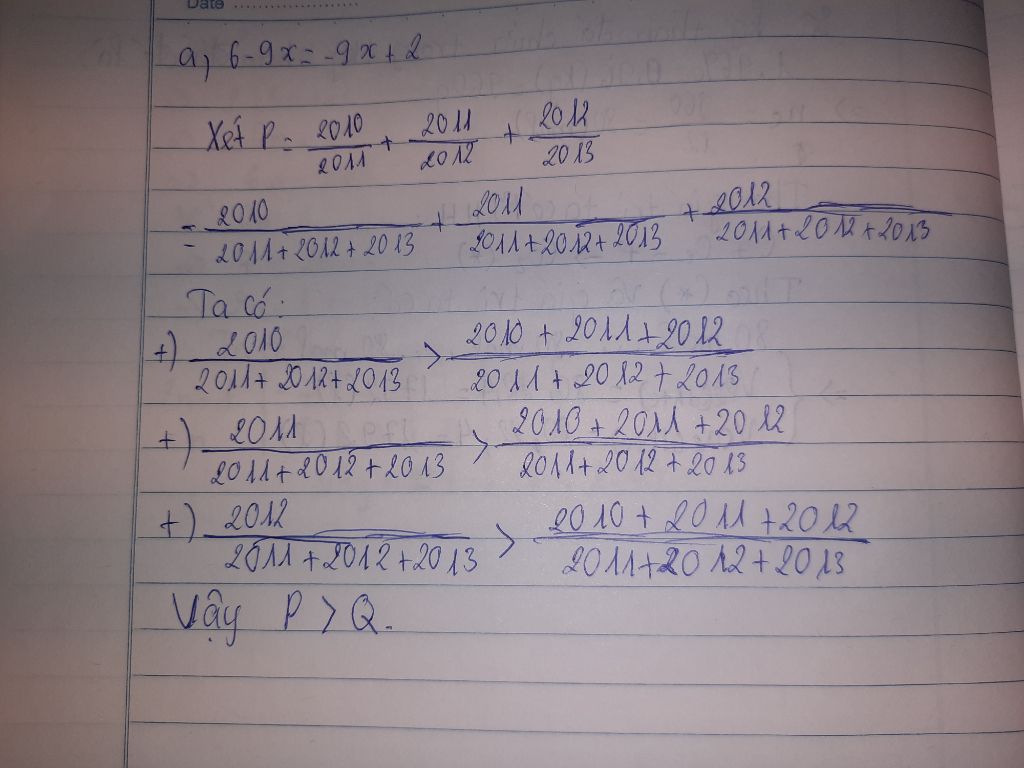 Date ......................
a, 6-9x=-9x+2
Xét P = 2010/2011 + 2011/2012 + 2012/2013
= 2010/2011+2012+2013 + 2011/2011+2012+2013 + 2012/2011+2012+2013
Ta có:
+) 2010/2011+2012+2013 > 2010+2011+2012/2011+2012+2013
+) 2011/2011+2012+2013 > 2010+2011+2012/2011+2012+2013
+) 2012/2011+2012+2013 > 2010+2011+2012/2011+2012+2013
Vậy P > Q.